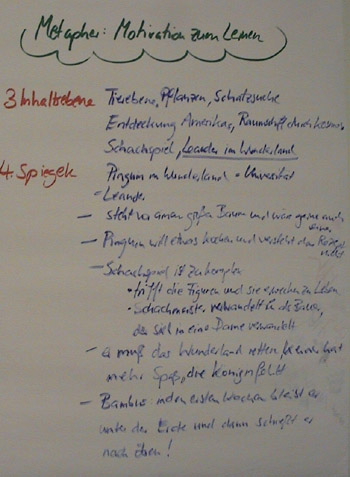 Metapher: Motivation zum Lernen
3 Inhaltsebene Tierebene, Pflanzen, Schatzsuche
Entdeckung Amerikas, Raumschiff durch Kosmos
Schachspiel, Leander im Wunderland
4. Spiegeln Pinguin im Wunderland - Universität
- Leander
- steht vor einem großen Baum und wäre gerne auch einer
- Pinguin will etwas kochen und versteht das Rezept nicht
- Schachspiel ist
• trifft die Figuren und sie erwachen zu Leben
• Schachmeister verwandelt in Bauer,
der sich in eine Dame verwandelt
- er muß das Wunderland retten, hat
mehr Spaß, die Königin
- Bambus: in den ersten Wochen bleibt er
unter der Erde und dann schießt er
nach oben!